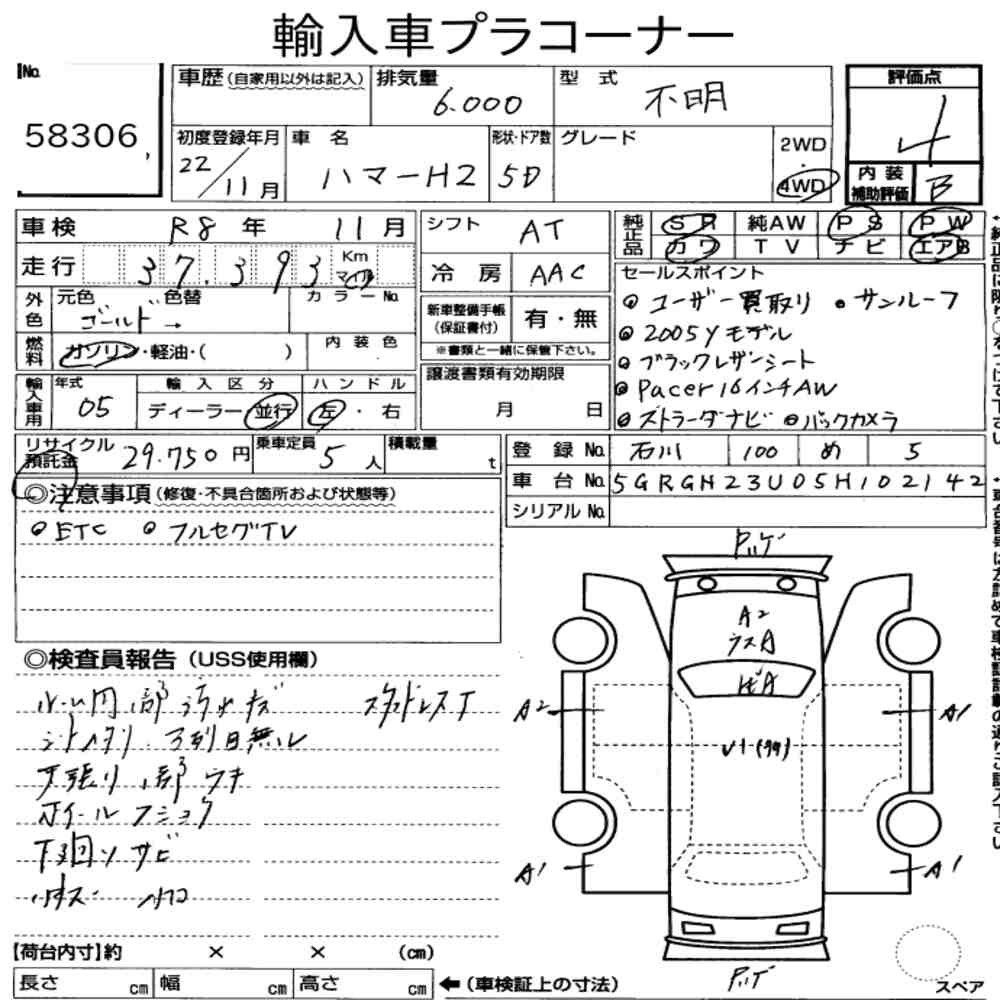 輸入車プラコーナー
No.
58306
車歴(自家用以外は記入)
排気量
6.000
型 式
不明
評価点
4
初度登録年月
22/11月
車 名
ハマーH2
形状・ドア数
5D
グレード
2WD
・
4WD
内 装
補助評価
B
車検
R8 年 11月
シフト
AT
純正品
SR 純AW PS PW
カワ TV ナビ エアB
走行
37.393
Km
マイル
冷 房
AAC
セールスポイント
◎ ユーザー買取り ◎ サンルーフ
◎ 2005yモデル
◎ ブラックレザーシート
◎ Pacer16インチAW
◎ ストラーダナビ ◎ バックカメラ
外色
元色 色替
ゴールド →
カラーNo.
新車整備手帳
(保証書付)
有・無
※書類と一緒に保管下さい。
燃料
ガソリン・軽油・( )
内 装 色
輸入車用
年式
05
輸 入 区 分
ディーラー・並行
ハ ン ド ル
左・右
譲渡書類有効期限
月 日
リサイクル
預託金
29.750円
乗車定員
5人
積載量
t
登 録 No.
石川 100 め 5
車 台 No.
5GRGN23U05H102142
シリアルNo.
◎注意事項(修復・不具合箇所および状態等)
◎ ETC ◎ フルセグTV
◎検査員報告(USS使用欄)
シートヘタリ 3列目無し
天張り
下回りサビ
A2
A2
A1
A1
A1
【荷台内寸】約 × × (cm)
長さ cm 幅 cm 高さ cm
←(車検証上の寸法)
スペア